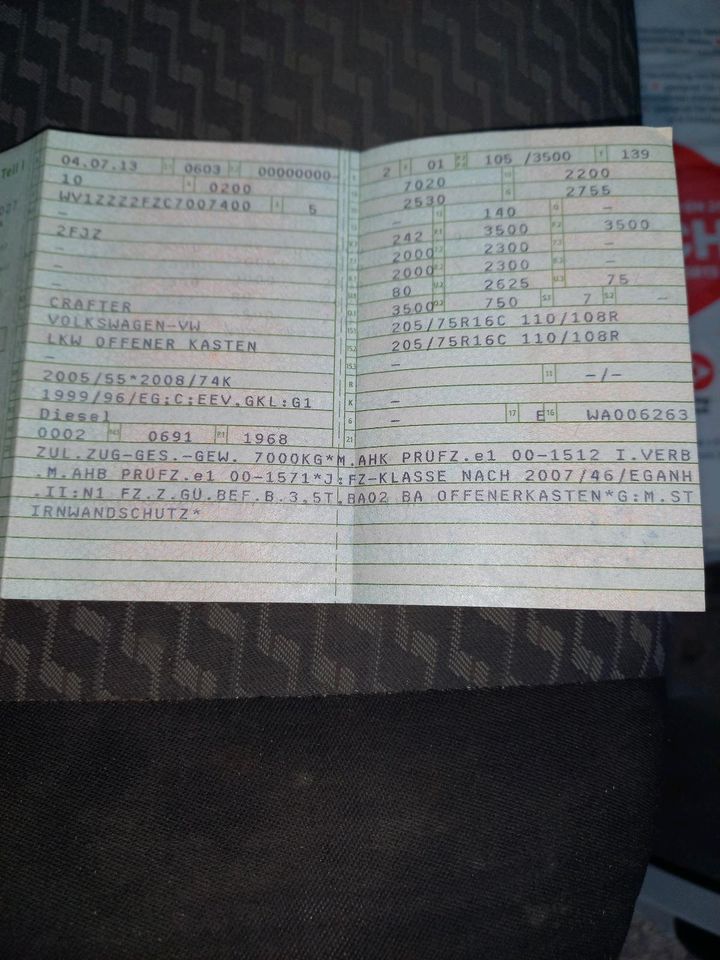 Teil I
04.07.13 0603 00000000-
10 0200
WV1ZZZ2FZC7007400 5
–
2FJZ
–
–
CRAFTER
VOLKSWAGEN-VW
LKW OFFENER KASTEN
–
2005/55*2008/74K
1999/96/EG;C;EEV,GKL:G1
Diesel
0002 0691 1968
2 01 105 /3500 139
7020 2200
2530 2755
– 140 –
242 3500 3500
2000 2300 –
2000 2300 –
80 2625 75
3500 750 7 –
205/75R16C 110/108R
205/75R16C 110/108R
–
11 –/–
K –
– 17 E 16 WA006263
21
ZUL.ZUG-GES.-GEW. 7000KG*M.AHK PRÜFZ.e1 00-1512 I.VERB
.M.AHB PRÜFZ.e1 00-1571*J:FZ-KLASSE NACH 2007/46/EGANH
.II:N1 FZ.Z.GÜ.BEF.B.3,5T,BA02 BA OFFENERKASTEN*G:M.ST
IRNWANDSCHUTZ*